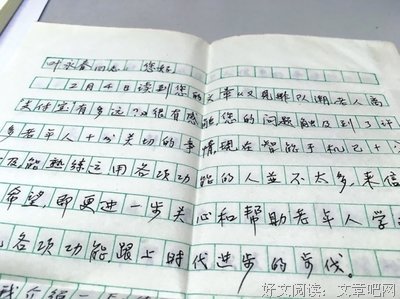 叶永春同志 您好
2月4日读到您的文章《又见排队潮老人离
支付宝有多远?》很有感 您的问题触及到了许
多老年人十分关切的事情现在智能手机已十
及能熟练运用各项功能的人並不太多，来信
希望，即更进一步关心和帮助老年人学
各项功能跟上时代进步的步伐。
我介绍一
好文阅读：文章吧网